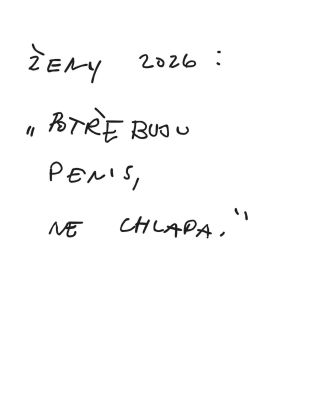 ŽENY 2026:
„POTŘEBUJU
PENIS,
NE CHLAPA."